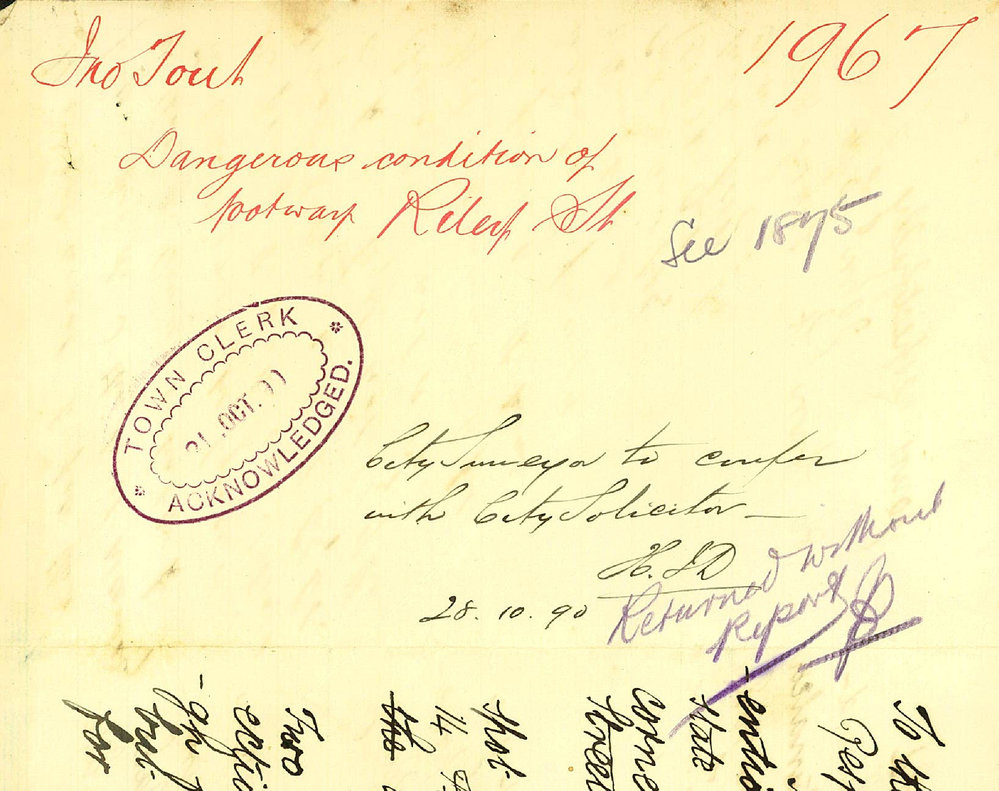 Jno Tout
1967
Dangerous condition of
footway Riley St
See 1875
TOWN CLERK
21 OCT. 90
ACKNOWLEDGED.
City Surveyor to confer
with City Solicitor —
H.J.D
28.10.90
Returned without
Report
To th
-entio
State
corne
Street
Spot
14
the
Two
ectio
-gh
for